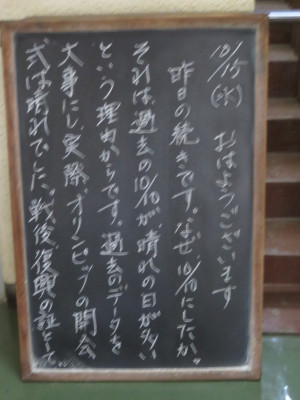 10/15(水) おはようございます
昨日の続きです。なぜ、10/10にしたか。
それは、過去の10/10が、晴れの日が多い
という理由からです。過去のデータを
大事にし、実際、オリンピックの開会
式は晴れでした。戦後、復興の証として